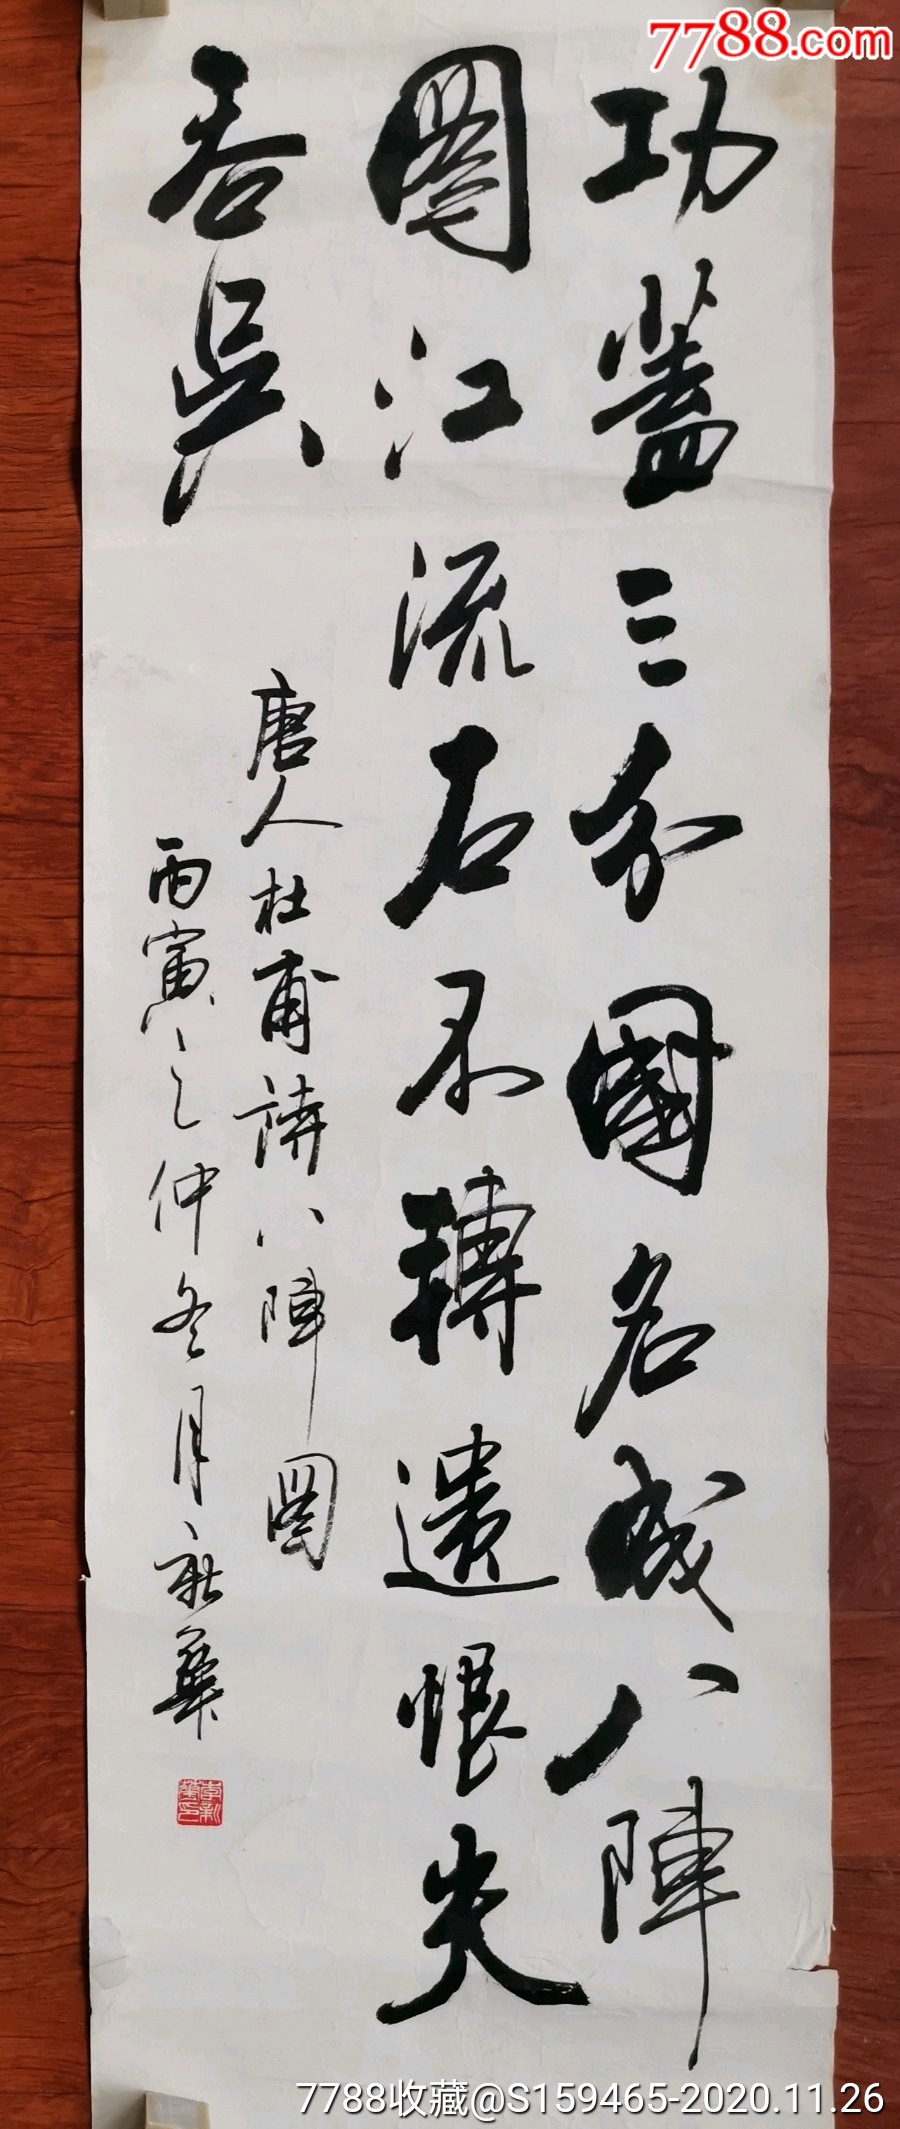 7788.com
功蓋三分國名成八陣
圖江流石不轉遺恨失
吞吳
唐人杜甫詩八陣圖
丙寅之仲冬月新華
李新華印
7788收藏@S159465-2020.11.26